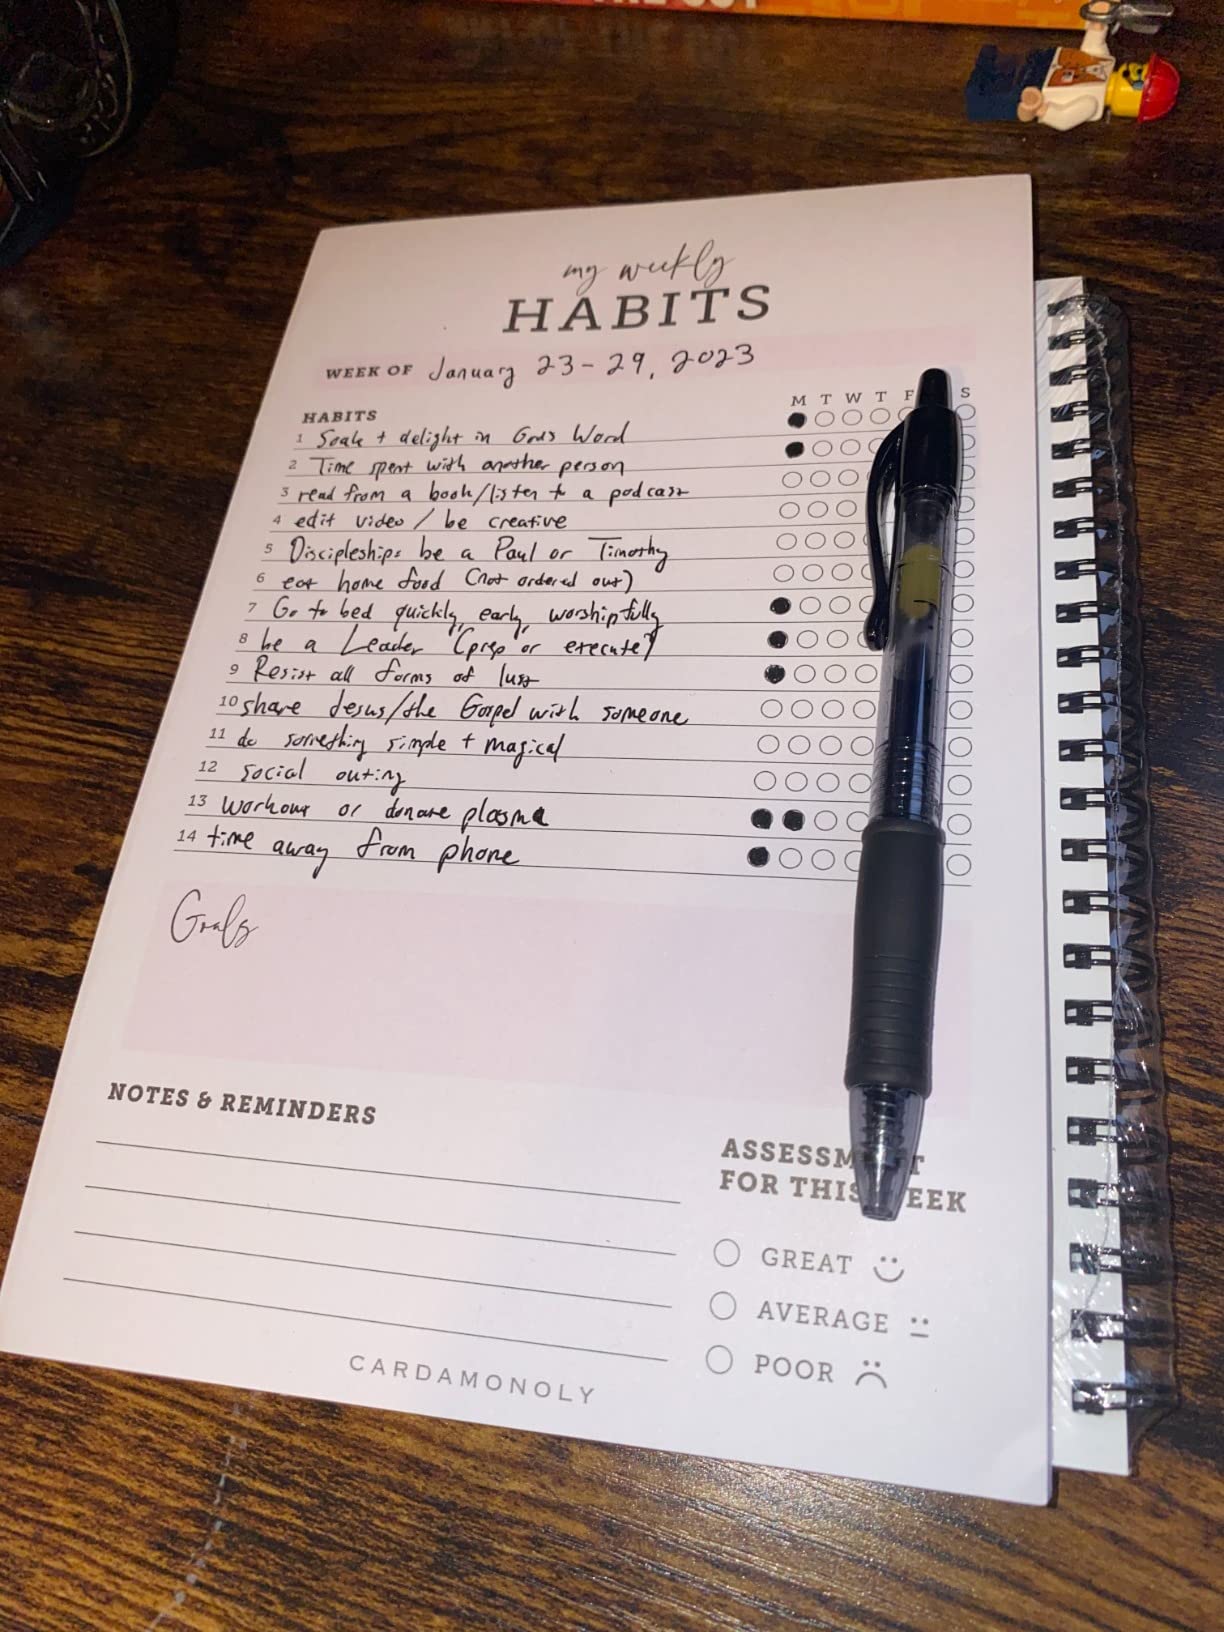 my weekly
HABITS
WEEK OF January 23-29, 2023
HABITS M T W T F S
1 Soak + delight in Gods Word
2 Time spent with another person
3 read from a book/listen to a podcast
4 edit video / be creative
5 Discipleship: be a Paul or Timothy
6 eat home food (not ordered out)
7 Go to bed quickly, early, worshipfully
8 be a Leader (prep or execute)
9 Resist all forms of lust
10 share Jesus/the Gospel with someone
11 do something simple + magical
12 social outing
13 workout or donate plasma
14 time away from phone
Goals
NOTES & REMINDERS
ASSESSM T
FOR THIS EEK
GREAT
AVERAGE
POOR
CARDAMONOLY